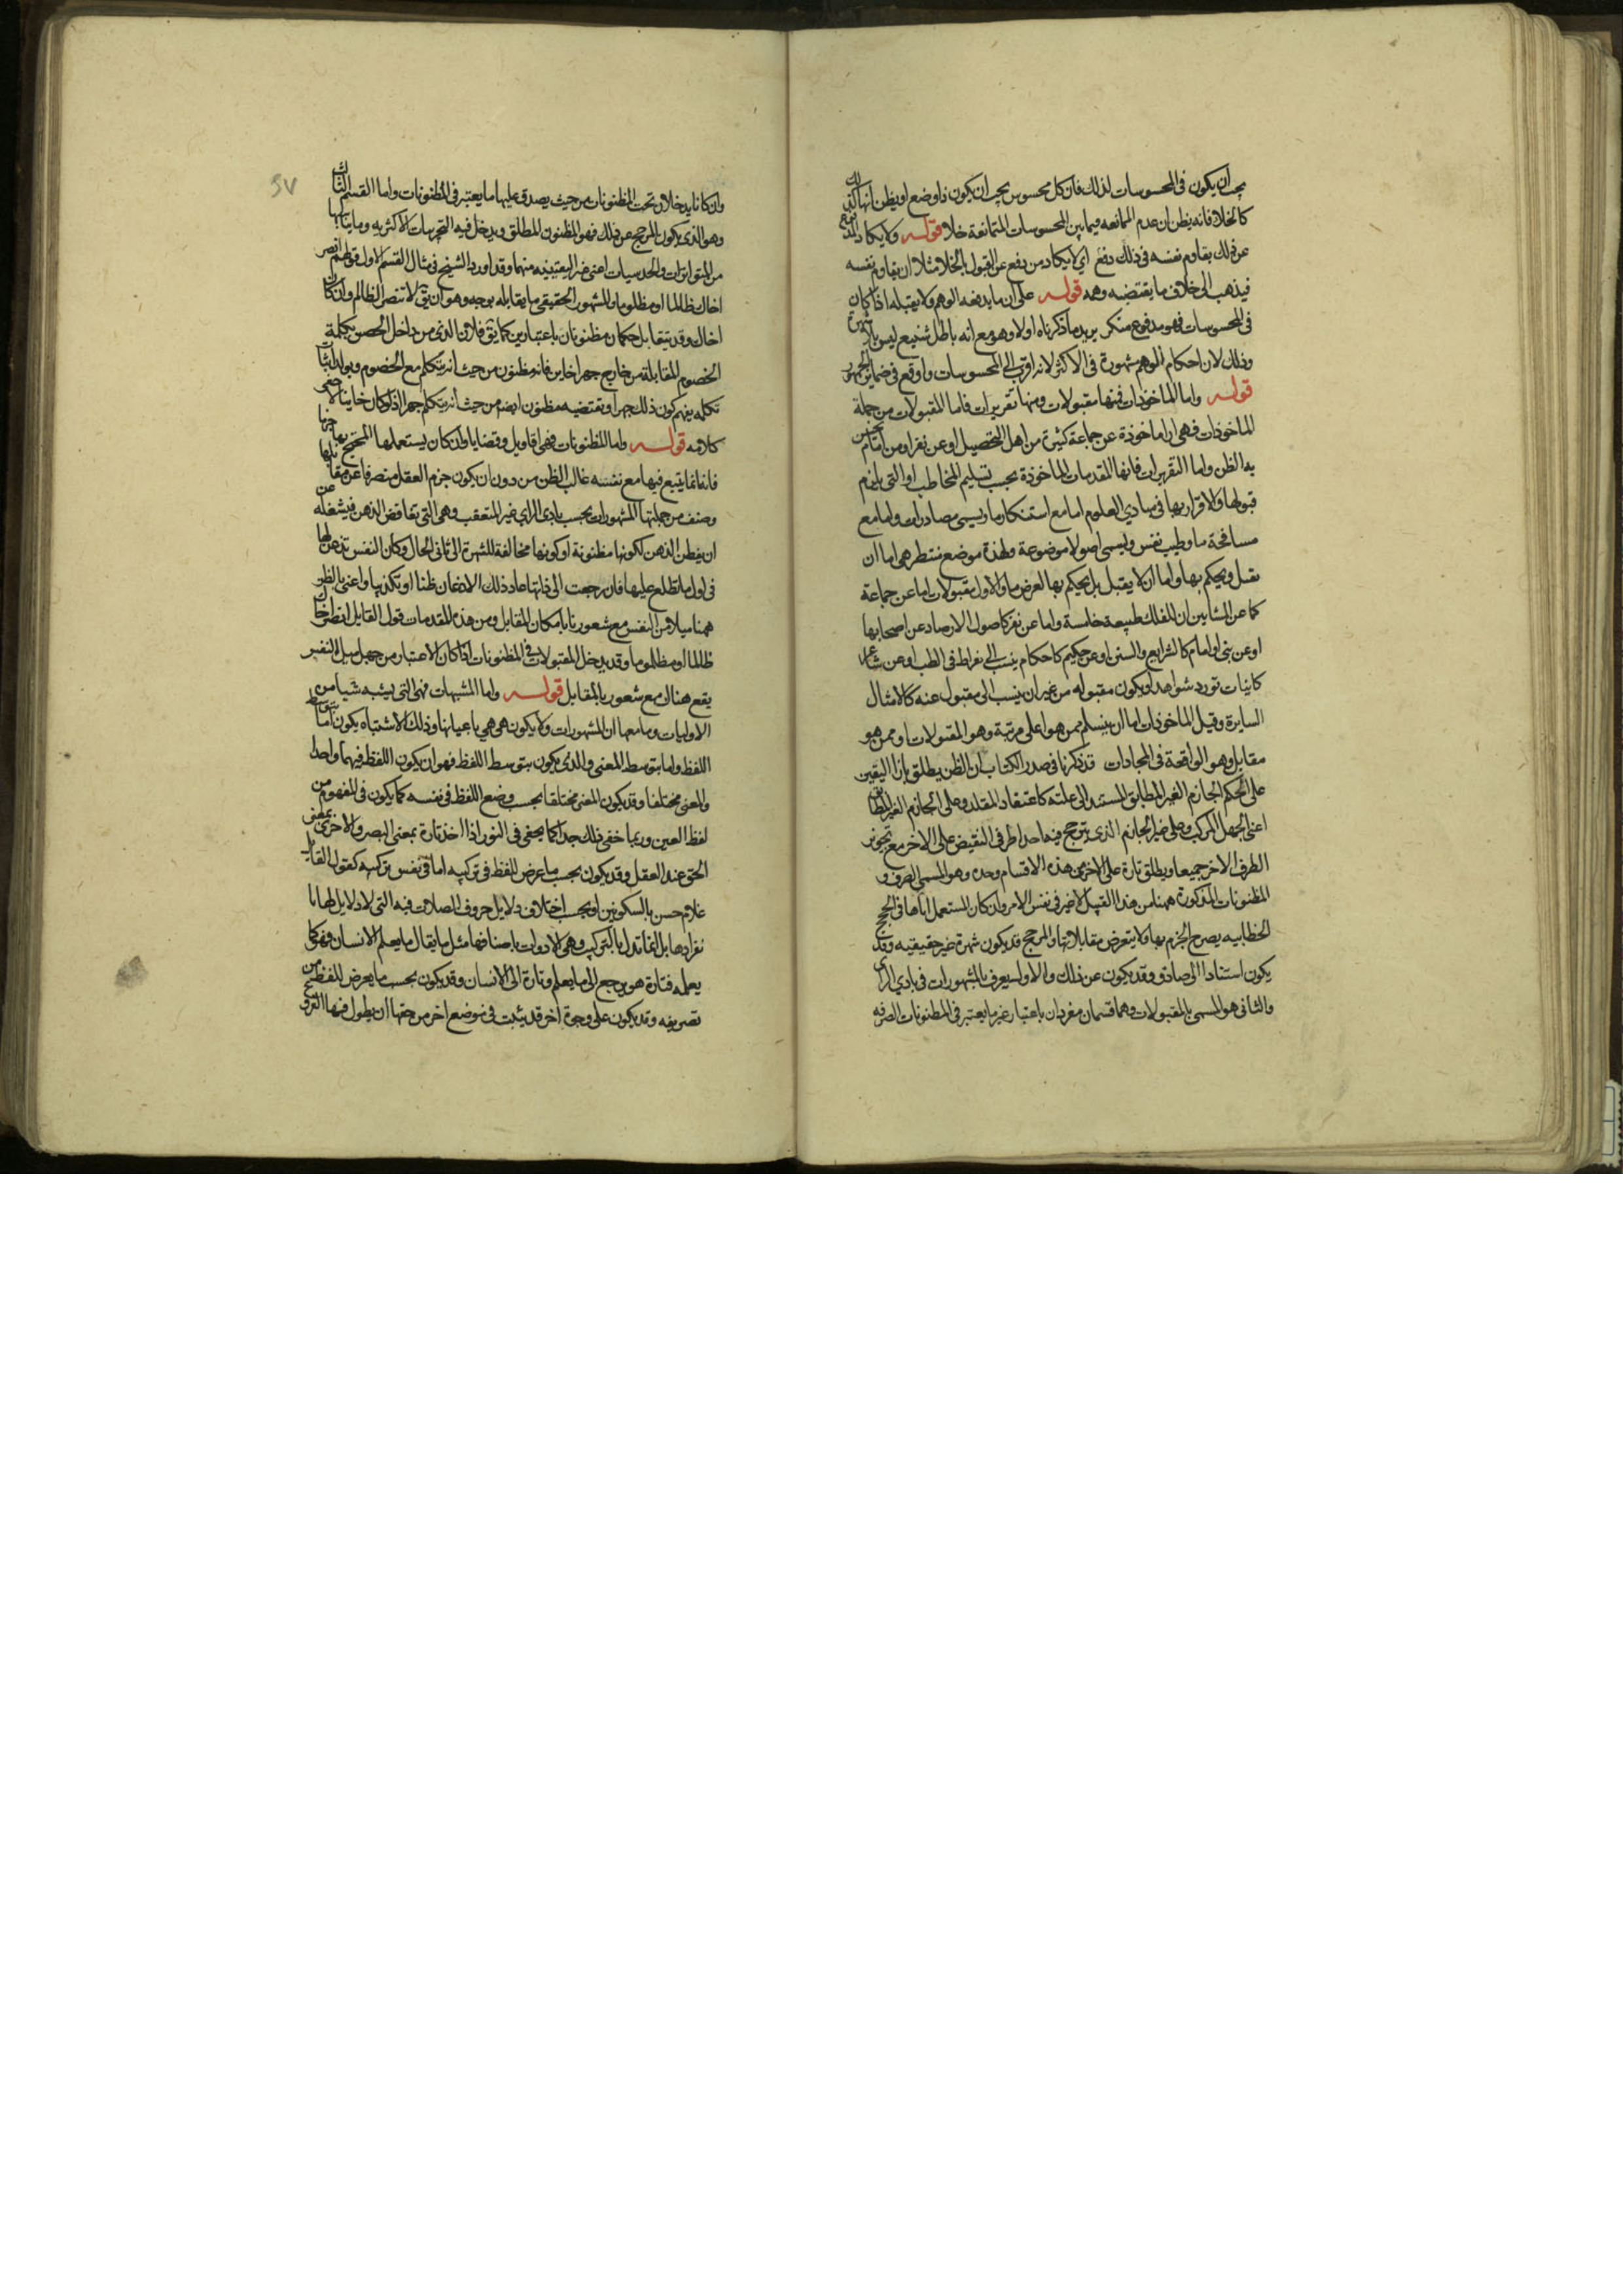 يجب ان يكون في المحسوسات لذلك فان كل محسوس يجب ان يكون ذا وضع او يظن انها كذلك
كالخلا فانه يظن ان عدم الممانعه فيما بين المحسوسات المتمانعة خلا قوله ولا يكاد المدفع
عن ذلك يقاوم نفسه في ذلك دفع اي لا يكاد من دفع عن القول بالخلا مثلا ان يقاوم نفسه
فيذهب الى خلاف ما يقتضيه وهمه قوله على ان ما يدفعه الوهم ولا يقبله اذا كان
في المحسوسات فهو مدفوع منكر يريد ما ذكرناه اولا وهو مع انه باطل شنيع ليس بلا شهرة
وذلك لان احكام الوهم مشهورة في الاكثر لانه اقرب الى المحسوسات واوقع في ضمائر الجمهور
قوله واما الماخوذات فمنها مقبولات ومنها تقريرات فاما المقبولات من جملة
الماخوذات فهي ارا ماخوذة عن جماعة كثيرة من اهل التحصيل او عن نفر او من امام يحسن
به الظن واما التقريرات فانها المقدمات الماخوذة بحسب تسليم المخاطب او التي يلزم
قبولها والاقرار بها في مبادي العلوم اما مع استنكار ما ويسمى مصادرات واما مع
مسامحة ما وطيب نفس ويسمى اصولا موضوعة ولهذه موضع منتظر هي اما ان
تقبل ويحكم بها واما ان لا يقبل بل يحكم بها لغرض ما والاول مقبولات اما عن جماعة
كما عن المشايين ان للفلك طبيعة خامسة واما عن نفر كاصول الارصاد عن اصحابها
او عن نبي او امام كالشرايع والسنن او عن حكيم كاحكام ينسب الى بقراط في الطب او عن شاعر
كابيات تورد شواهد او يكون مقبوله من غير ان ينسب الى مقبول عنه كالامثال
السايرة وقيل الماخوذات اما ان يتسلم ممن هو اعلى مرتبة وهو المقبولات او ممن هو
مقابل وهو الواقعة في المجادلات قد ذكرنا في صدر الكتاب ان الظن يطلق بازا اليقين
على الحكم الجازم الغير المطابق المستند الى علته كاعتقاد المقلد وعلى الجازم الغير المطابق
اعني الجهل المركب وعلى غير الجازم الذي يترجح فيه احد طرفي النقيض على الاخر مع تجويز
الطرف الاخر جميعا ويطلق تارة على الاخير من هذه الاقسام وحده وهو المسمى الصرف و
المظنونات المذكورة ههنا من هذا القبيل لا غير في نفس الامر وان كان المستعمل اياها في الحجج
الخطابيه يصرح الجزم بها ولا يتعرض مقابلاتها والمرجح قد يكون شهرة غير حقيقيه وقد
يكون استنادا الى صادق وقد يكون غير ذلك والاول يعرف بالمشهورات في بادي الراى
والثاني هو المسمى بالمقبولات وهما قسمان مفردان باعتبار غير ما يعتبر في المظنونات الصرفه
وان كانا يدخلان تحت المظنونات من حيث يصدق عليها ما يعتبر في المظنونات واما القسم الثالث
وهو الذي يكون المرجح غير ذلك فهو المظنون المطلق ويدخل فيه التجربيات الاكثريه وما يناسبها
من المتواترات والحدسيات اعني غير اليقينيه منها وقد اورد الشيخ في مثال القسم الاول قولهم انصر
اخاك ظالما او مظلوما والمشهور الحقيقي ما يقابله بوجه وهو ان يق لا تنصر الظالم وان كان
اخاك وقد يتقابل حكمان مظنونان باعتبارين كما يق فلان الذي من داخل الحصن يتكلمه
الخصوم المقابلة من خارج جهرا خاين فانه مظنون من حيث انه يتكلم مع الخصوم
تكلمه يفهم كون ذلك جهرا ونقيضه مظنون ايضه من حيث انه يتكلم جهرا اذ لو كان خاينا لاخفى
كلامه قوله واما المظنونات فهي اقاويل وقضايا وان كان يستعملها المحتج بها جزما
فانه انما يتبع فيها مع نفسه غالب الظن من دون ان يكون جزم العقل منصرفا عن مقابلها
وصنف من جملتها المشهورات بحسب بادي الراي غير المتعقب وهي التي تعافص الذهن فيشغله عن
ان يفطن الذهن لكونها مظنونة او كونها مخالفة للشهرة الى ثاني الحال وكان النفس تذعن لها
في اول ما تطلع عليها فان رجعت الى ذاتها عاد ذلك الاذعان ظنا او تكذيبا واعني بالظن
ههنا ميلا من النفس مع شعور ما بامكان المقابل ومن هذه المقدمات قول القايل انصر اخاك
ظالما او مظلوما وقد يدخل المقبولات في المظنونات اذا كان الاعتبار من جهة ميل النفس
يقع هناك مع شعور بالمقابل قوله واما المشبهات فهي التي يشبه شيا من
الاوليات وما معها او المشهورات ولا يكون هي هي باعيانها وذلك الاشتباه يكون اما بتوسط
اللفظ واما بتوسط المعنى والذى يكون بتوسط اللفظ فهو ان يكون اللفظ فيهما واحدا
والمعنى مختلفا وقد يكون المعنى مختلفا بحسب وضع اللفظ في نفسه كما يكون في المفهوم من
لفظ العين وربما خفي ذلك جدا كما يخفى في النور اذا اخذ تارة بمعنى المبصر والاخرى بمعنى
الحق عند العقل وقد يكون بحسب ما عرض اللفظ في تركيبه اما في نفس تركيبه كقول القايل
غلام حسن بالسكونين او بحسب اختلاف دلايل حروف الصلات فيه التي لا دلايل لها با
نفرادها بل انما تدل بالتركيب وهي الادوات باصنافها مثل ما يقال ما يعلم الانسان فهو كما
يعلمه فتارة هو يرجع الى ما يعلم وتارة الى الانسان وقد يكون بحسب ما يعرض للفظ من
تصريفه وقد يكون على وجوه اخر قد بينت في موضع اخر من حقها ان يطول فيها